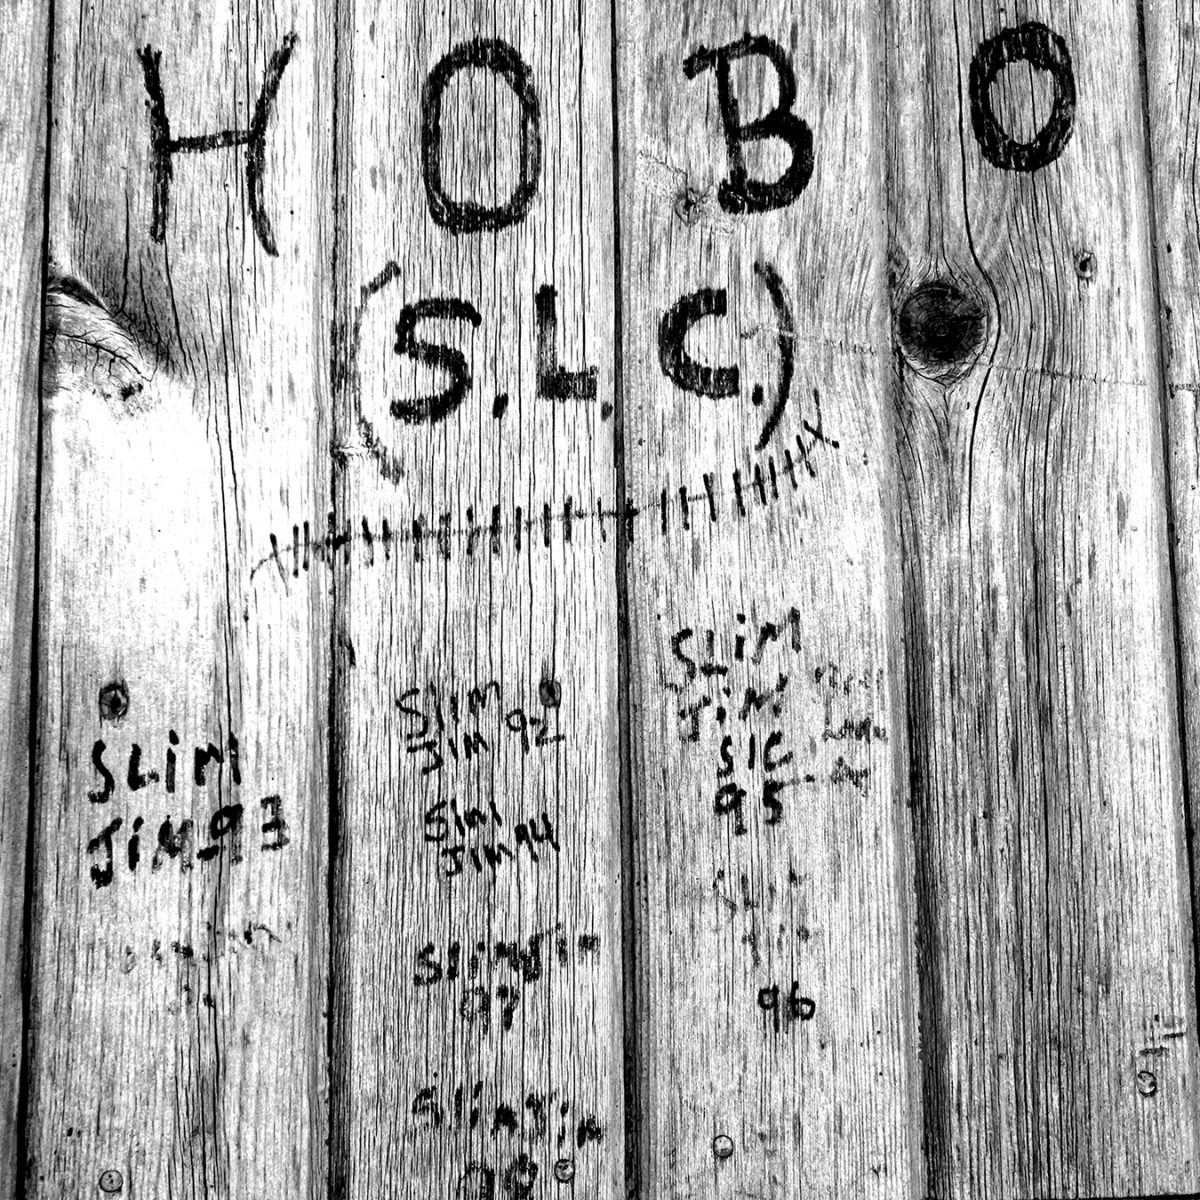 HOBO
(S.L.C.)
SLiM
JiM 93
Slim
JIM 92
Slim
JIM 94
SlimJim
97
SlimJim
SLiM
JiM
SlC
95
96